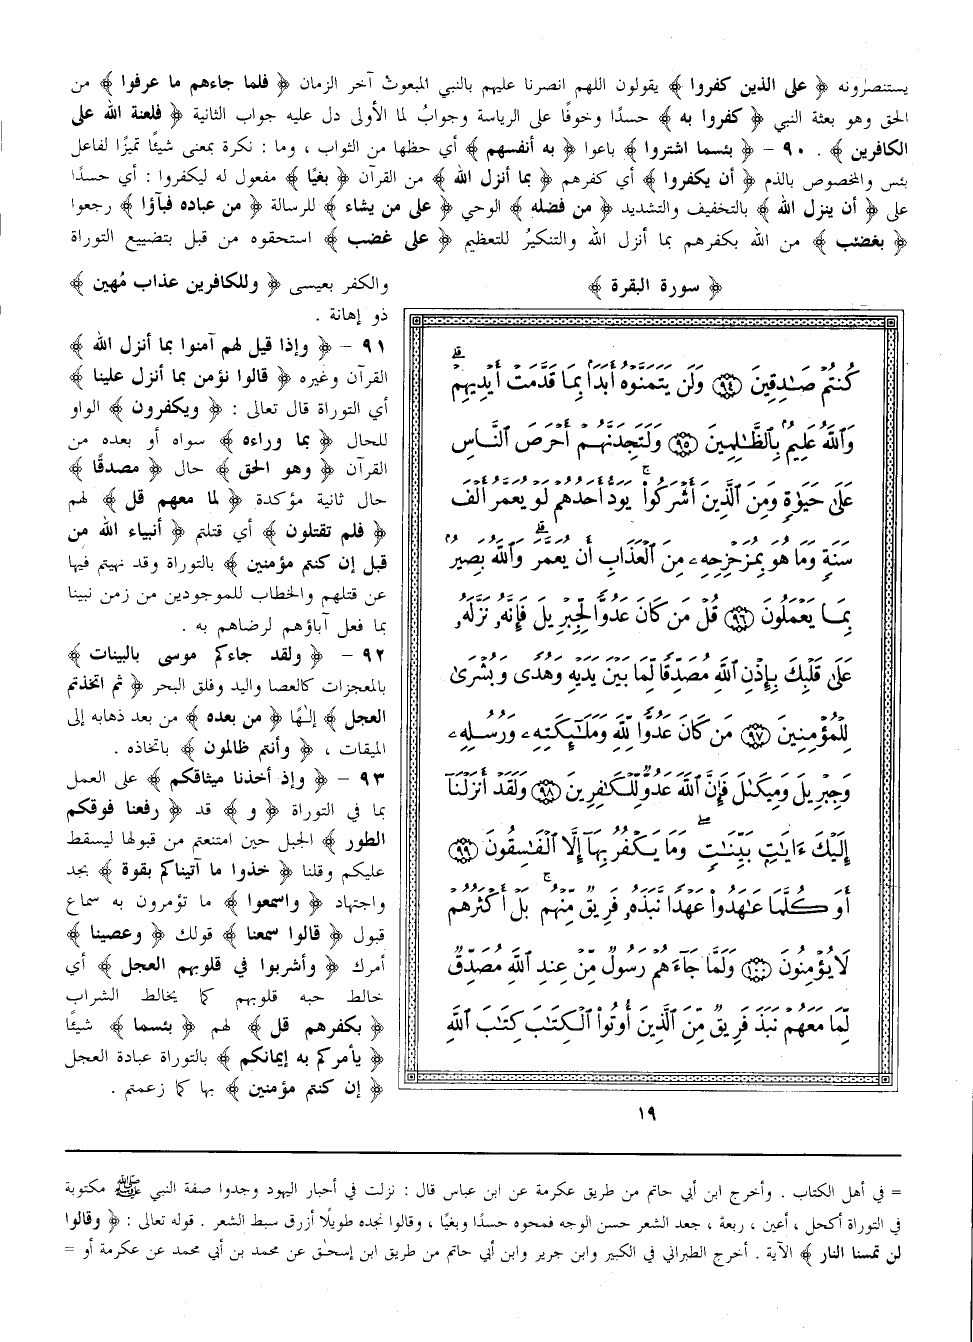 يستنصرونه ﴿ على الذين كفروا ﴾ يقولون اللهم انصرنا عليهم بالنبي المبعوث آخر الزمان ﴿ فلما جاءهم ما عرفوا ﴾ من
الحق وهو بعثة النبي ﴿ كفروا به ﴾ حسدًا وخوفًا على الرياسة وجوابُ لما الأولى دل عليه جواب الثانية ﴿ فلعنة الله على
الكافرين ﴾ . ٩٠ - ﴿ بئسما اشتروا ﴾ باعوا ﴿ به أنفسهم ﴾ أي حظها من الثواب ، وما : نكرة بمعنى شيئًا تميزًا لفاعل
بئس والمخصوص بالذم ﴿ أن يكفروا ﴾ أي كفرهم ﴿ بما أنزل الله ﴾ من القرآن ﴿ بغيًا ﴾ مفعول له ليكفروا : أي حسدًا
على ﴿ أن ينزل الله ﴾ بالتخفيف والتشديد ﴿ من فضله ﴾ الوحي ﴿ على من يشاء ﴾ للرسالة ﴿ من عباده فبآؤا ﴾ رجعوا
﴿ بغضب ﴾ من الله بكفرهم بما أنزل الله والتنكيرُ للتعظيم ﴿ على غضب ﴾ استحقوه من قبل بتضييع التوراة
والكفر بعيسى ﴿ وللكافرين عذاب مُهين ﴾
ذو إهانة .
٩١ - ﴿ وإذا قيل لهم آمنوا بما أنزل الله ﴾
القرآن وغيره ﴿ قالوا نؤمن بما أنزل علينا ﴾
أي التوراة قال تعالى : ﴿ ويكفرون ﴾ الواو
للحال ﴿ بما وراءه ﴾ سواه أو بعده من
القرآن ﴿ وهو الحق ﴾ حال ﴿ مصدقًا ﴾
حال ثانية مؤكدة ﴿ لما معهم قل ﴾ لهم
﴿ فلم تقتلون ﴾ أي قتلتم ﴿ أنبياء الله من
قبل إن كنتم مؤمنين ﴾ بالتوراة وقد نهيتم فيها
عن قتلهم والخطاب للموجودين من زمن نبينا
بما فعل آباؤهم لرضاهم به .
٩٢ - ﴿ ولقد جاءكم موسى بالبينات ﴾
بالمعجزات كالعصا واليد وفلق البحر ﴿ ثم اتخذتم
العجل ﴾ إلـٰهًا ﴿ من بعده ﴾ من بعد ذهابه إلى
الميقات ، ﴿ وأنتم ظالمون ﴾ باتخاذه .
٩٣ - ﴿ وإذ أخذنا ميثاقكم ﴾ على العمل
بما في التوراة ﴿ و ﴾ قد ﴿ رفعنا فوقكم
الطور ﴾ الجبل حين امتنعتم من قبولها ليسقط
عليكم وقلنا ﴿ خذوا ما آتيناكم بقوة ﴾ بجد
واجتهاد ﴿ واسمعوا ﴾ ما تؤمرون به سماع
قبول ﴿ قالوا سمعنا ﴾ قولك ﴿ وعصينا ﴾
أمرك ﴿ وأشربوا في قلوبهم العجل ﴾ أي
خالط حبه قلوبهم كما يخالط الشراب
﴿ بكفرهم قل ﴾ لهم ﴿ بئسما ﴾ شيئًا
﴿ يأمركم به إيمانكم ﴾ بالتوراة عبادة العجل
﴿ إن كنتم مؤمنين ﴾ بها كما زعمتم .
﴿ سورة البقرة ﴾
كُنتُمْ صَـٰدِقِينَ ﴿٩٤﴾ وَلَن يَتَمَنَّوْهُ أَبَدًۢا بِمَا قَدَّمَتْ أَيْدِيهِمْۗ
وَٱللَّهُ عَلِيمٌۢ بِٱلظَّـٰلِمِينَ ﴿٩٥﴾ وَلَتَجِدَنَّهُمْ أَحْرَصَ ٱلنَّاسِ
عَلَىٰ حَيَوٰةٍ وَمِنَ ٱلَّذِينَ أَشْرَكُوا۟ۚ يَوَدُّ أَحَدُهُمْ لَوْ يُعَمَّرُ أَلْفَ
سَنَةٍ وَمَا هُوَ بِمُزَحْزِحِهِۦ مِنَ ٱلْعَذَابِ أَن يُعَمَّرَۗ وَٱللَّهُ بَصِيرٌۢ
بِمَا يَعْمَلُونَ ﴿٩٦﴾ قُلْ مَن كَانَ عَدُوًّا لِّجِبْرِيلَ فَإِنَّهُۥ نَزَّلَهُۥ
عَلَىٰ قَلْبِكَ بِإِذْنِ ٱللَّهِ مُصَدِّقًا لِّمَا بَيْنَ يَدَيْهِ وَهُدًى وَبُشْرَىٰ
لِلْمُؤْمِنِينَ ﴿٩٧﴾ مَن كَانَ عَدُوًّا لِّلَّهِ وَمَلَـٰٓئِكَتِهِۦ وَرُسُلِهِۦ
وَجِبْرِيلَ وَمِيكَىٰلَ فَإِنَّ ٱللَّهَ عَدُوٌّ لِّلْكَـٰفِرِينَ ﴿٩٨﴾ وَلَقَدْ أَنزَلْنَآ
إِلَيْكَ ءَايَـٰتٍۭ بَيِّنَـٰتٍۖ وَمَا يَكْفُرُ بِهَآ إِلَّا ٱلْفَـٰسِقُونَ ﴿٩٩﴾
أَوَكُلَّمَا عَـٰهَدُوا۟ عَهْدًا نَّبَذَهُۥ فَرِيقٌ مِّنْهُمۚ بَلْ أَكْثَرُهُمْ
لَا يُؤْمِنُونَ ﴿١٠٠﴾ وَلَمَّا جَآءَهُمْ رَسُولٌ مِّنْ عِندِ ٱللَّهِ مُصَدِّقٌ
لِّمَا مَعَهُمْ نَبَذَ فَرِيقٌ مِّنَ ٱلَّذِينَ أُوتُوا۟ ٱلْكِتَـٰبَ كِتَـٰبَ ٱللَّهِ
١٩
= في أهل الكتاب . وأخرج ابن أبي حاتم من طريق عكرمة عن ابن عباس قال : نزلت في أحبار اليهود وجدوا صفة النبي ﷺ مكتوبة
في التوراة أكحل ، أعين ، ربعة ، جعد الشعر حسن الوجه فمحوه حسدًا وبغيًا ، وقالوا نجده طويلًا أزرق سبط الشعر . قوله تعالى : ﴿ وقالوا
لن تمسنا النار ﴾ الآية . أخرج الطبراني في الكبير وابن جرير وابن أبي حاتم من طريق ابن إسحـٰق عن محمد بن أبي محمد عن عكرمة أو =